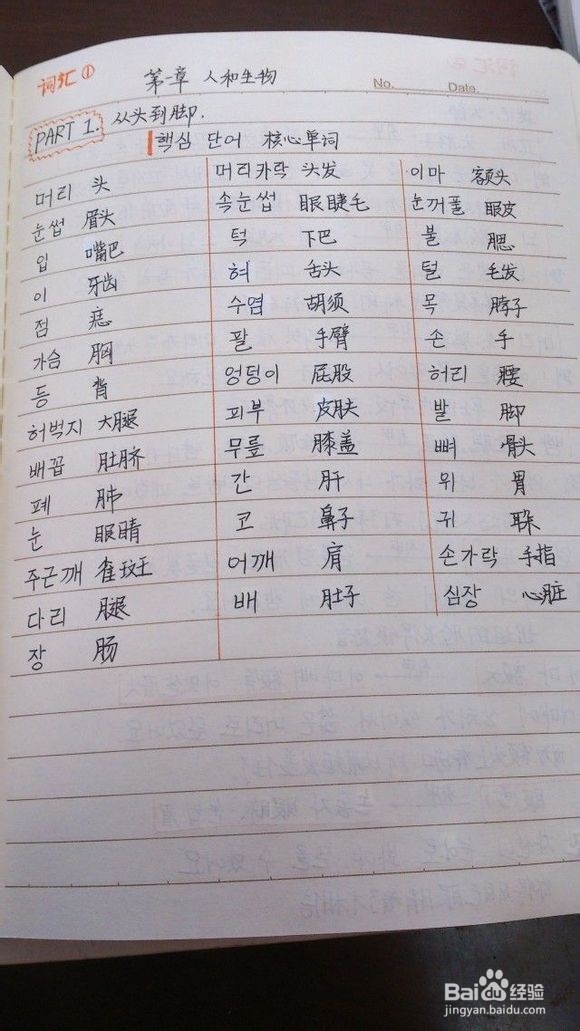 词汇①
第一章 人和生物
No. Date.
PART 1. 从头到脚.
핵심 단어 核心单词
머리 头 머리카락 头发 이마 额头
눈썹 眉头 속눈썹 眼睫毛 눈꺼풀 眼皮
입 嘴巴 턱 下巴 볼 腮
이 牙齿 혀 舌头 털 毛发
점 痣 수염 胡须 목 脖子
가슴 胸 팔 手臂 손 手
등 背 엉덩이 屁股 허리 腰
허벅지 大腿 피부 皮肤 발 脚
배꼽 肚脐 무릎 膝盖 뼈 骨头
폐 肺 간 肝 위 胃
눈 眼睛 코 鼻子 귀
주근깨 雀斑 어깨 肩 손가락 手指
다리 腿 배 肚子 심장 心脏
장 肠
Baidu 经验
jingyan.baidu.com